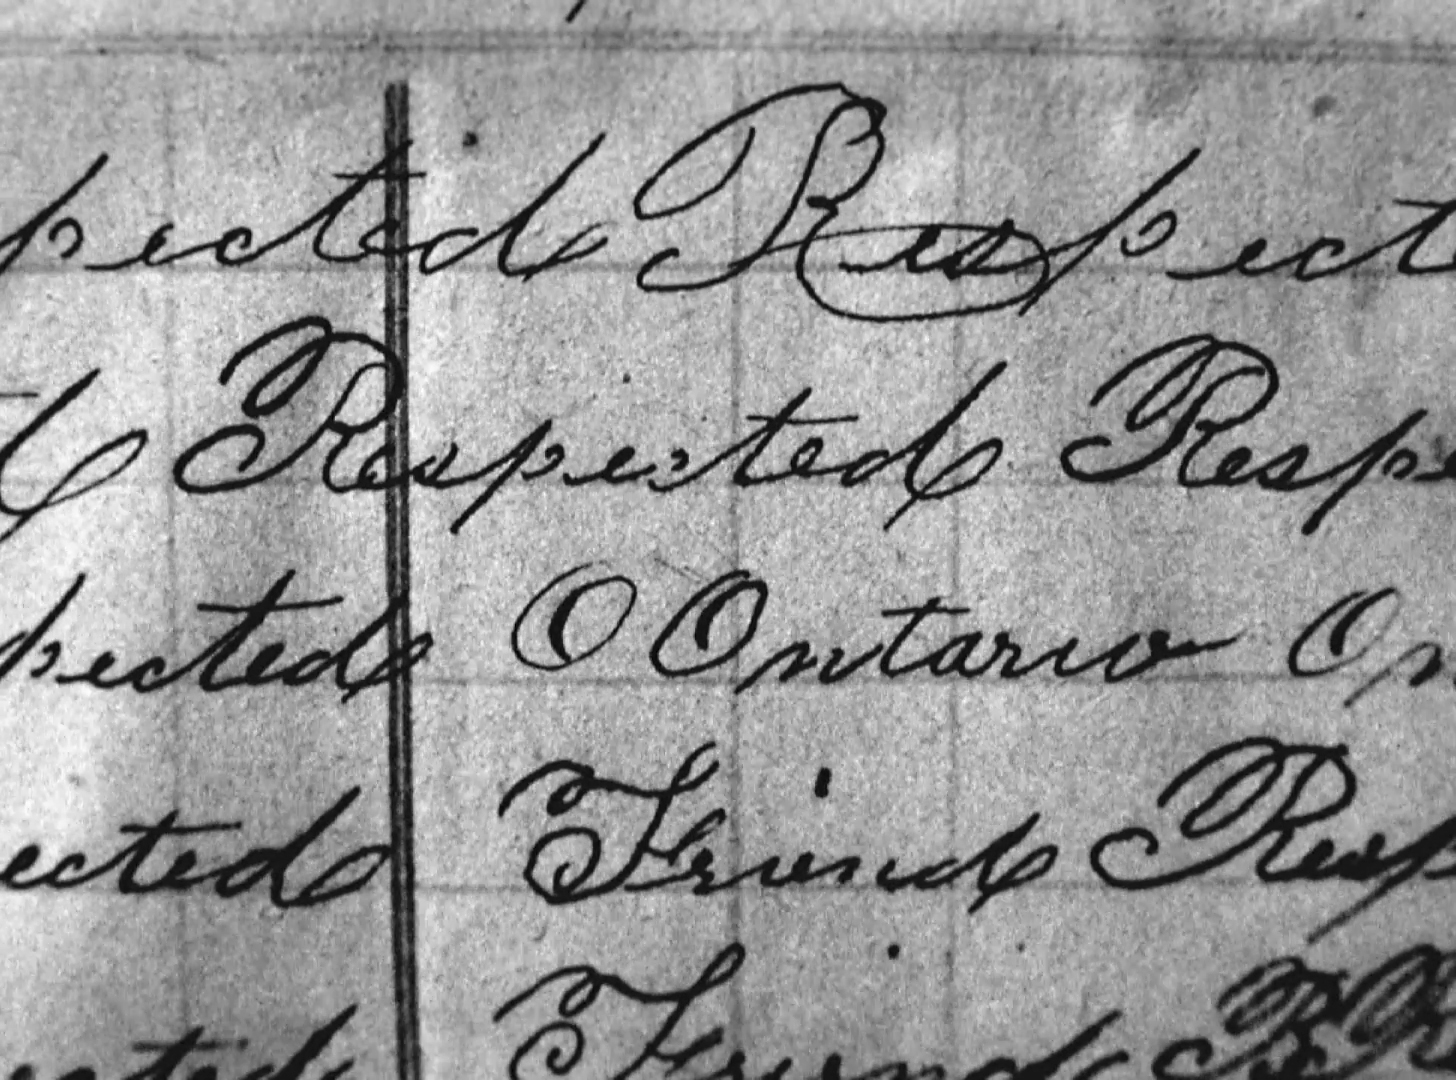 pected Respecte
d Respected Respe
pected O Ontario On
ected Friend Resp
ected Friend R R